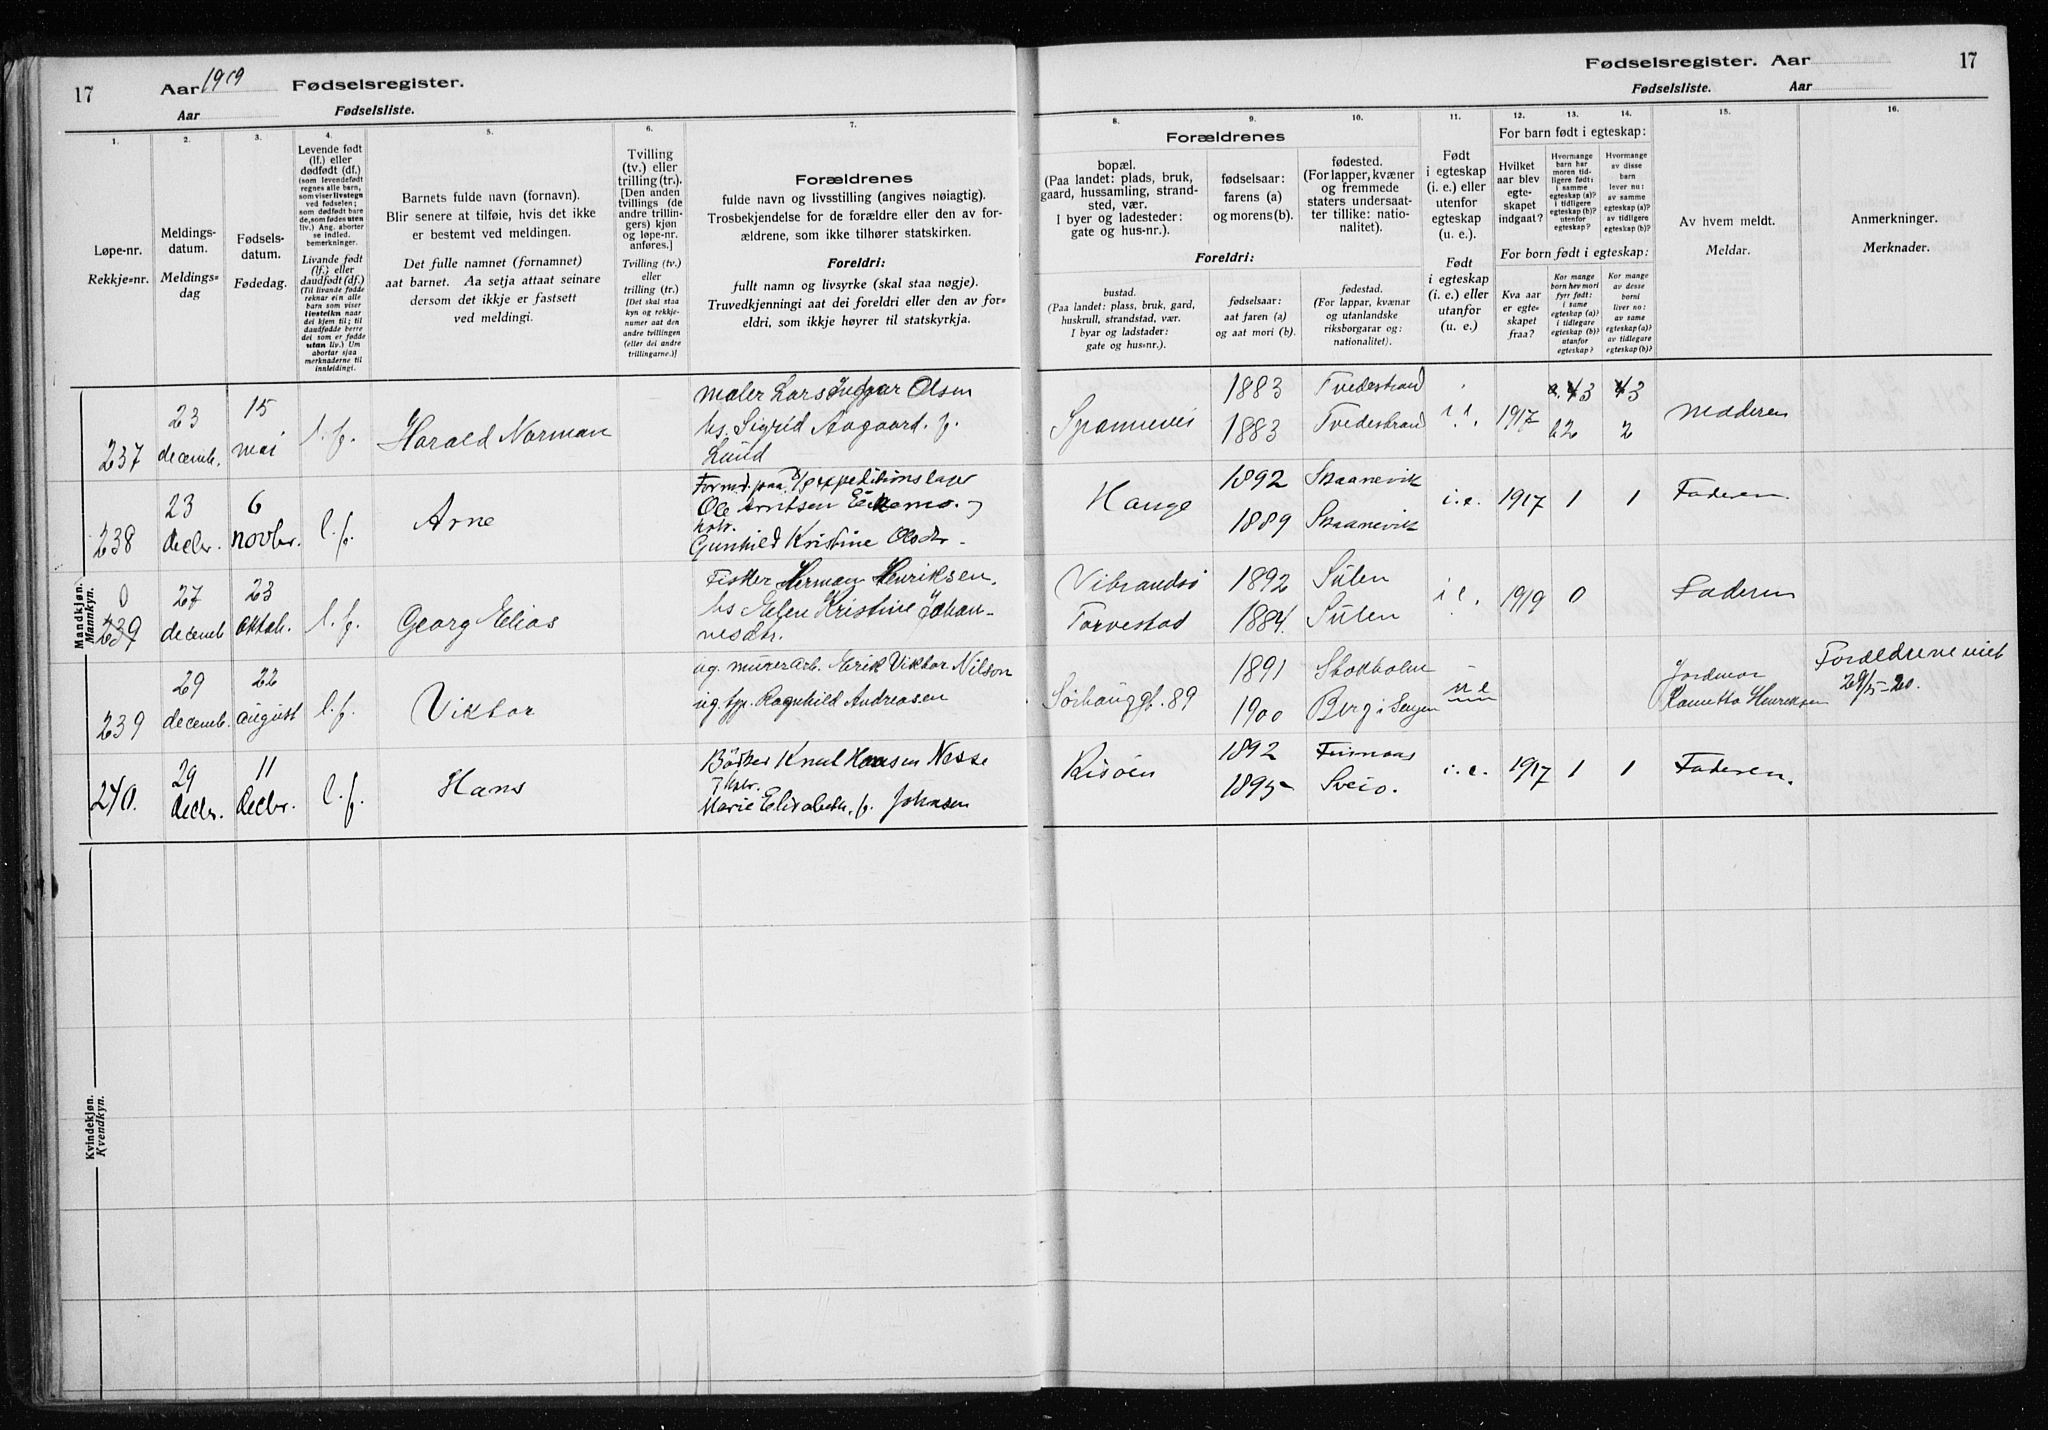 17
Aar 1919 Fødselsregister.
Aar Fødselsliste.
1.
2.
3.
4.
5.
6.
7.
Løpe-nr.
Rekkje=nr.
Meldings-
datum.
Meldings=
dag
Fødsels-
datum.
Fødedag.
Levende født
(lf.) eller
dødfødt (df.)
(som levendefødt
regnes alle barn,
som viser livstegn
ved fødselen;
som dødfødt bare
de, som fødes uten
liv.) Ang. aborter
se indled.
bemerkninger.
Livande født
(lf.) eller
daudfødt (df.)
(Til livande fødde
reknar ein alle
barn som viser
livsteikn naar
dei kjem til; til
daudfødde berre
dei som er fødde
utan liv.) Um
abortar sjaa
merknaderne til
innleidingi.
Barnets fulde navn (fornavn).
Blir senere at tilføie, hvis det ikke
er bestemt ved meldingen.
Det fulle namnet (fornamnet)
aat barnet. Aa setja attaat seinare
dersom det ikkje er fastsett
ved meldingi.
Tvilling
(tv.) eller
trilling (tr.).
[Den anden
tvillings (de
andre trillin-
gers) kjøn
og løpe-nr.
anføres.]
Tvilling (tv.)
eller
trilling (tr.)
[Det skal staa
kyn og rekkje-
numer aat den
andre tvillingen
(eller dei andre
trillingarne.)]
Forældrenes
fulde navn og livsstilling (angives nøiagtig).
Trosbekjendelse for de forældre eller den av for-
ældrene, som ikke tilhører statskirken.
Foreldri:
fullt namn og livsyrke (skal staa nøgje).
Truvedkjenningi aat dei foreldri eller den av for=
eldri, som ikkje høyrer til statskyrkja.
Mandkjøn.
Mannkyn.
237
23
decemb.
15
mai
l. f.
Harald Norman
Maler Lars Olsen
hs. Sigrid Aagaard. f.
Lund
238
23
decbr.
6
novbr.
l. f.
Arne
Formd. paa expeditionslager
Ole Arntsen Eikemo.
hstr.
Gunhild Kristine Olsdtr.
0
239
27
decemb
23
oktob.
l. f.
Georg Elias
Fisker Herman Henriksen.
hs Elen Kristine Johan-
nesdtr.
239
29
decemb.
22
august
l. f.
Viktor
ug. murerarb. Erik Viktor Nilson
ug tj. Ragnhild Andreasen
240.
29
decbr.
11
decbr.
l. f.
Hans
Bödker Knut Hansen Nesse
hstr.
Marie Elisabeth. f. Johnsen
Kvindekjøn.
Kvendkyn.
Fødselsregister. Aar
17
Fødselsliste. Aar
8.
9.
10.
11.
12.
13.
14.
15.
16.
Forældrenes
bopæl.
(Paa landet: plads, bruk,
gaard, hussamling, strand-
sted, vær.
I byer og ladesteder:
gate og hus-nr.).
fødselsaar:
farens (a)
og morens (b).
fødested.
(For lapper, kvæner
og fremmede
staters undersaat-
ter tillike: natio-
nalitet).
Foreldri:
bustad.
(Paa landet: plass, bruk, gard,
huskrull, strandstad, vær.
I byar og ladstader:
gate og hus=nr.).
fødselsaar:
aat faren (a)
og aat mori (b).
fødestad.
(For lappar, kvænar
og utanlandske
riksborgarar og:
nationalitet).
Født
i egteskap
(i. e.) eller
utenfor
egteskap
(u. e.).
Født
i egteskap
(i. e.) eller
utanfor
(u. e.).
For barn født i egteskap:
Hvilket
aar blev
egte-
skapet
indgaat?
Hvormange
barn har
moren tid-
ligere født:
i samme
egteskap (a)?
i tidligere
egteskap (b)?
utenfor
egteskap?
Hvormange
av disse
barn
lever nu:
av samme
egteskap (a)?
av tidligere
egteskap (b)?
For barn født i egteskap:
Kva aar
er egte-
skapet
fraa?
Kor mange
barn hev mori
fyrr født:
i same
egteskap (a)?
i tidlegare
egteskap (b)?
utanfor
egteskap?
Kor mange
av desse
borni
liver no:
av same
egteskap (a)?
av tidlegare
egteskap (b)?
Av hvem meldt.
Meldar.
Anmerkninger.
Merknader.
Spannevei
1883
1883
Tvedestrand
Tvedestrand
i. e.
1917
a. 4 3
b 2
4 3
2
Moderen
Hauge
1892
1889
Skaanevik
Skaanevik
i. e.
1917
1
1
Faderen
Vibrandsö
Torvestad
1892
1884.
Sulen
Sulen
i e.
1919
0
Faderen
Sörhauggt. 89
1891
1900
Stokholm
Berg i Senjen
u e
Jordmor
Henriksen
Forældrene viet
29/5-20.
Risöen
1892
1895
Finnaas
Sveio.
i. e.
1917
1
1
Faderen.